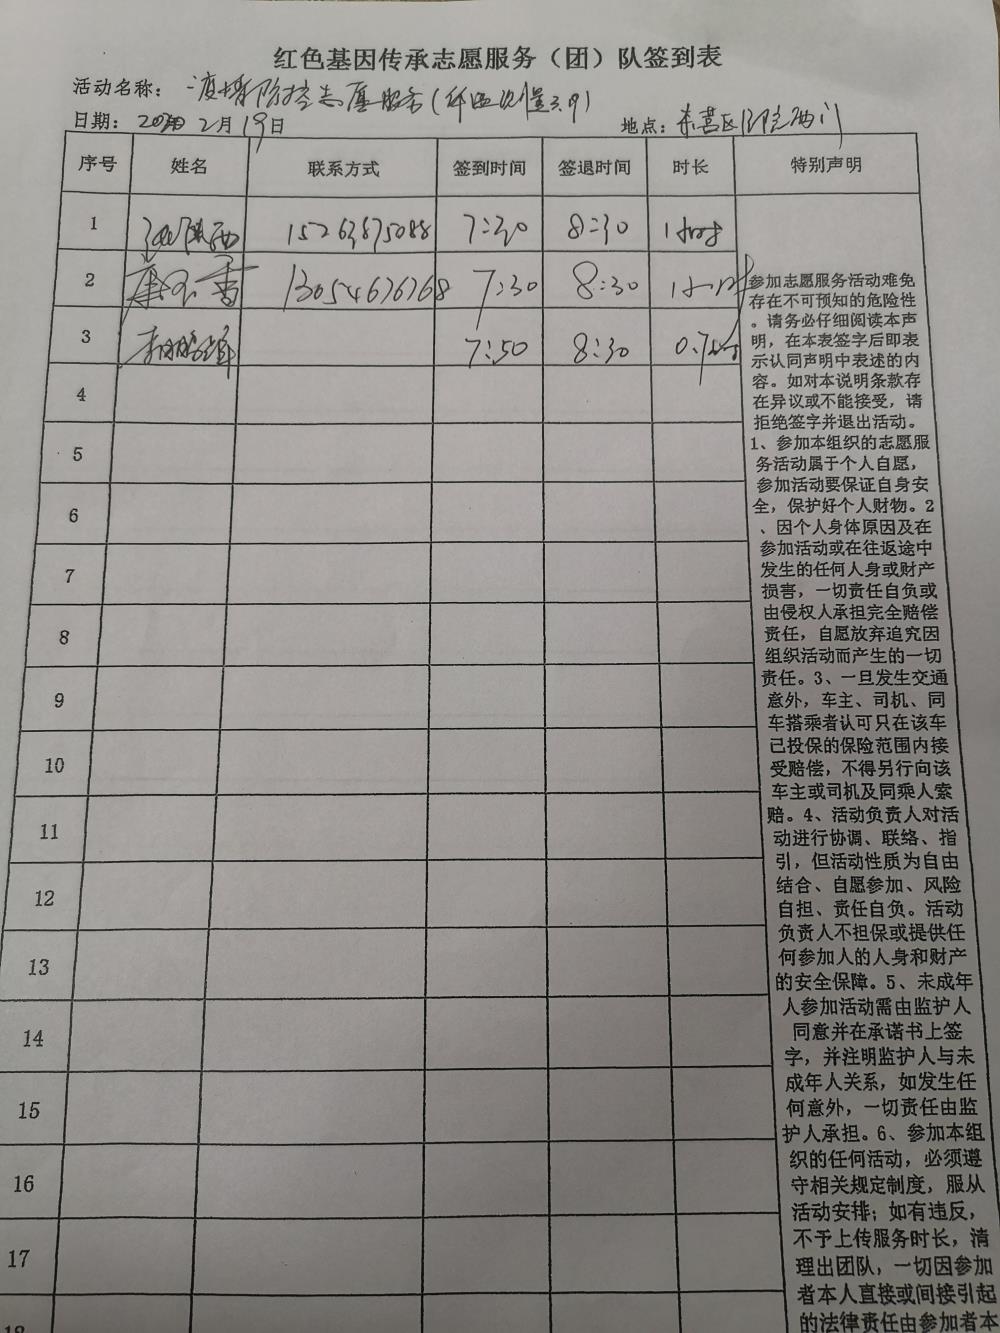 红色基因传承志愿服务（团）队签到表
活动名称： 疫情防控志愿服务（
日期： 2020 2月19日 地点： 东营区 西门
序号 姓名 联系方式 签到时间 签退时间 时长 特别声明
1 15263875088 7:30 8:30 1小时
2 13054676768 7:30 8:30 1小时
3 7:50 8:30
4
5
6
7
8
9
10
11
12
13
14
15
16
17
18
参加志愿服务活动难免
存在不可预知的危险性
。请务必仔细阅读本声
明，在本表签字后即表
示认同声明中表述的内
容。如对本说明条款存
在异议或不能接受，请
拒绝签字并退出活动。
1、参加本组织的志愿服
务活动属于个人自愿，
参加活动要保证自身安
全，保护好个人财物。2
、因个人身体原因及在
参加活动或在往返途中
发生的任何人身或财产
损害，一切责任自负或
由侵权人承担完全赔偿
责任，自愿放弃追究因
组织活动而产生的一切
责任。3、一旦发生交通
意外，车主、司机、同
车搭乘者认可只在该车
已投保的保险范围内接
受赔偿，不得另行向该
车主或司机及同乘人索
赔。4、活动负责人对活
动进行协调、联络、指
引，但活动性质为自由
结合、自愿参加、风险
自担、责任自负。活动
负责人不担保或提供任
何参加人的人身和财产
的安全保障。5、未成年
人参加活动需由监护人
同意并在承诺书上签
字，并注明监护人与未
成年人关系，如发生任
何意外，一切责任由监
护人承担。6、参加本组
织的任何活动，必须遵
守相关规定制度，服从
活动安排；如有违反，
不予上传服务时长，清
理出团队，一切因参加
者本人直接或间接引起
的法律责任由参加者本